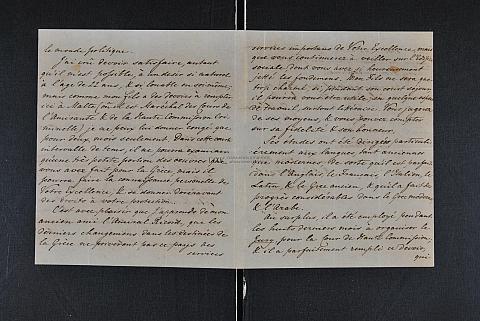 le monde politique.
J'ai cru devoir satisfaire, autant
qu'il m'est possible, à un desir si naturel
à l'age de 22 ans, & si louable en soi même;
mais comme mon fils a des devoirs à remplir
ici à Malte, (où il est Maréchal des Cours de
l'Amirauté & de la Haute Commission Cri-
minelle) je ne puis lui donner congé que
pour deux mois seulement. Dans cette court
intervalle de tems, il ne pourra examiner
qu'une très petite portion des oeuvres que
vous avez fait pour la Grèce, mais il
pourra faire la connaissance personnelle de
Votre Excellence, & se donner dorénavant
des droits à votre protection.
C'est avec plaisir que j'apprends de mon
ancien ami l'Amiral Ricord, que les
derniers changemens dans les destinées de
la Grèce ne priveront pas ce pays des
services
services importans de Votre Excellence, mais
que vous continuerez à veiller sur l'édifice
sociale dont vous avez si heureusement
jetté les fondemens. Mon fils ne sera pas
trop charmé si, pendant son court séjour,
il pourra vous être utile en quelque espèce
de travail, surtout littéraire. Vous jugerez
de ses moyens, & vous pouvez compter
sur sa fidelité & son honneur.
Ses études ont été dirigées particuli-
èrement aux langues, tant anciennes
que modernes. De sorte qu'il est parfait
dans l'Anglais, le Français, l'Italien, le
Latin, & le Grec ancien, & qu'il a fait des
progrès considérables dans le Grec moderne
& l'Arabe.
Au surplus, il a été employé pendant
les huits derniers mois à organiser le
Jury, pour la Cour de Haute Commission,
& il a parfaitement rempli ce devoir,
qui